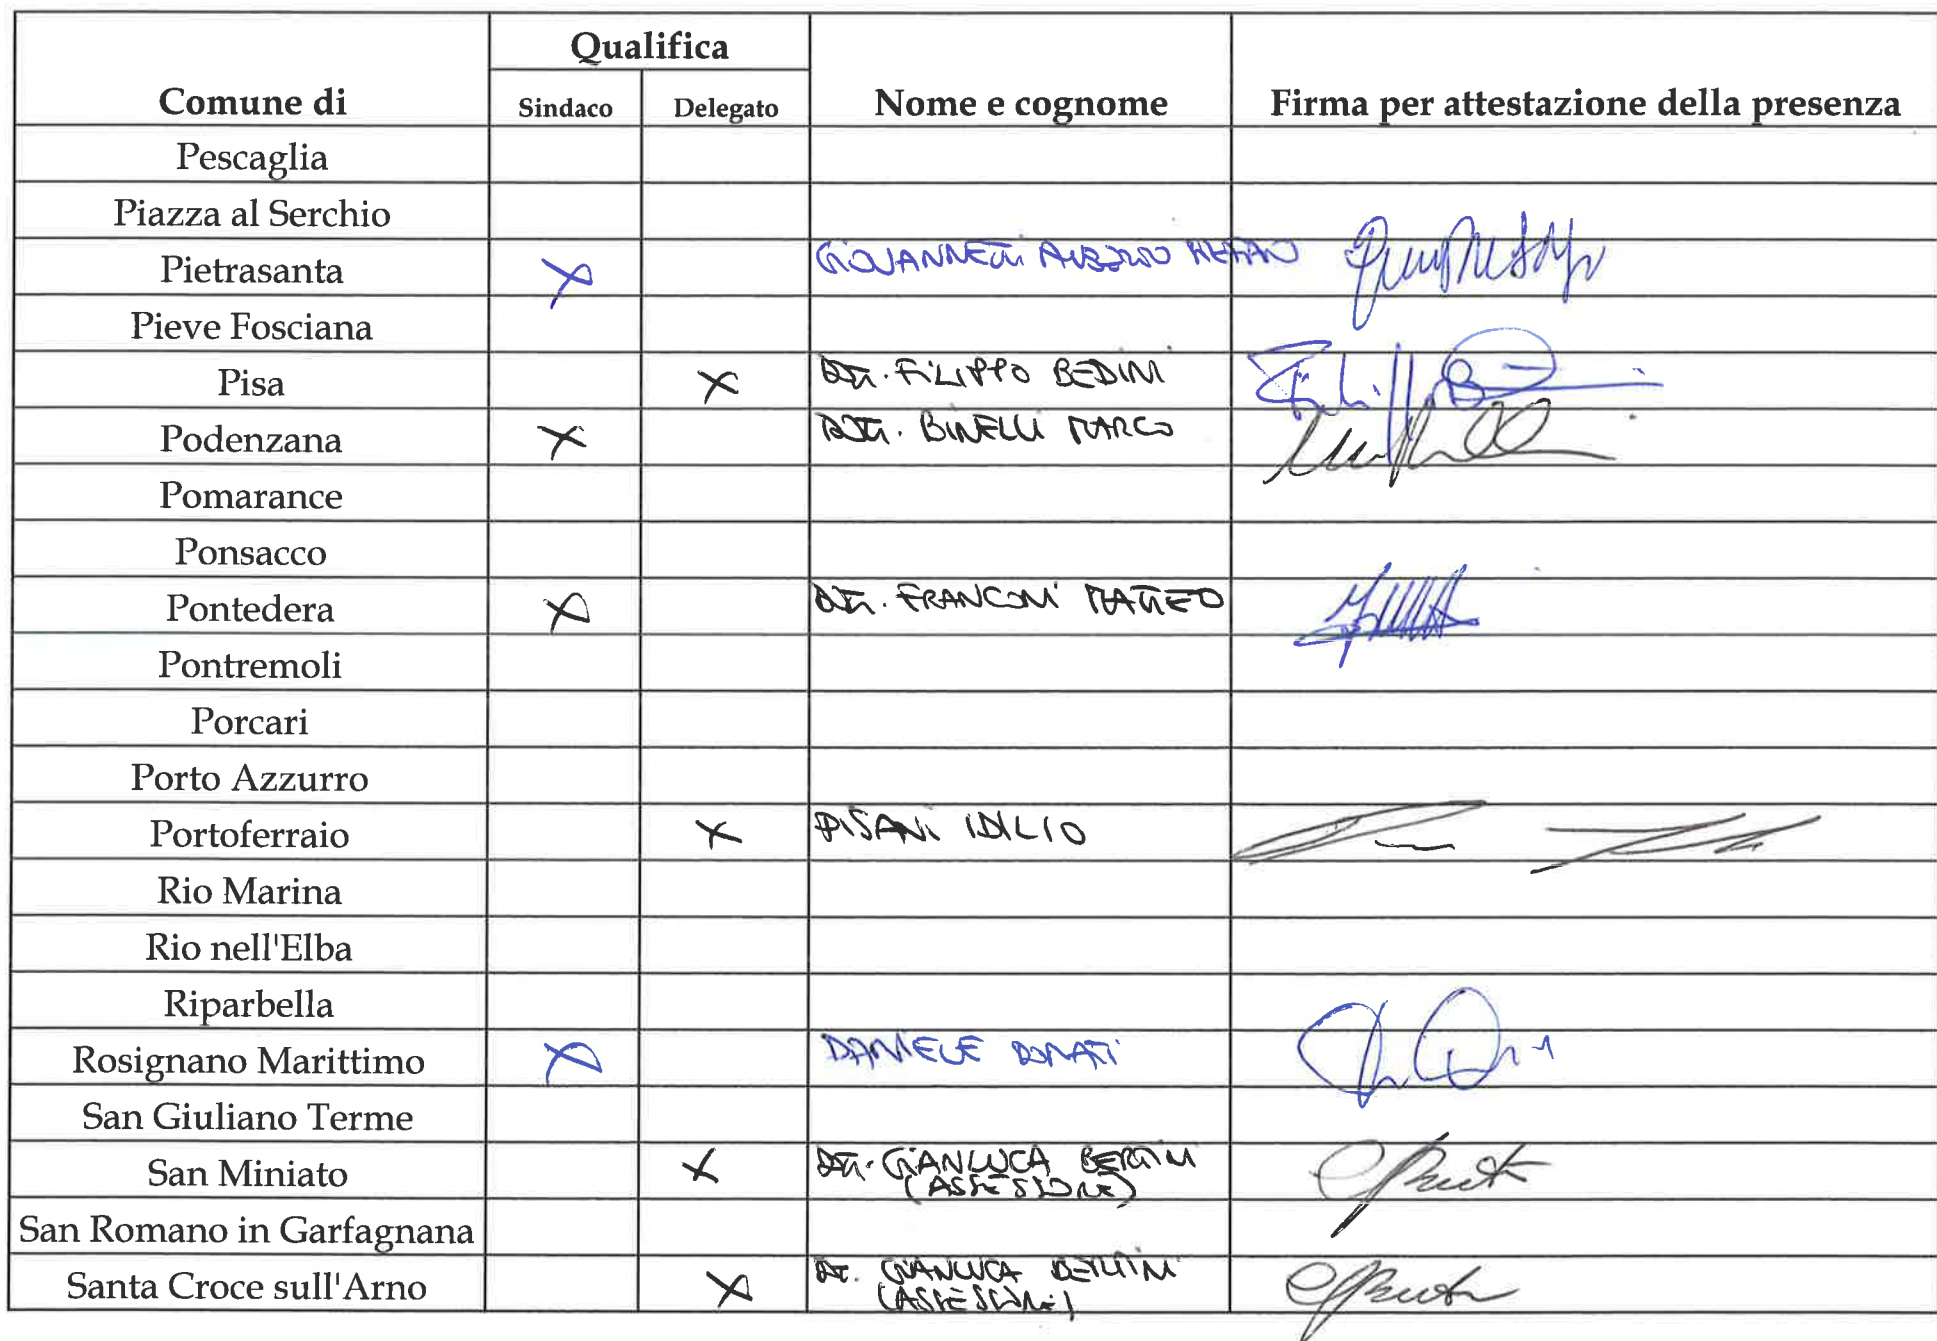 Qualifica
Comune di Sindaco Delegato Nome e cognome Firma per attestazione della presenza
Pescaglia
Piazza al Serchio
Pietrasanta X GIOVANNETTI ALBERTO STEFANO
Pieve Fosciana
Pisa X DOTT. FILIPPO BEDINI
Podenzana X DOTT. BINELLI MARCO
Pomarance
Ponsacco
Pontedera X DOTT. FRANCONI MATTEO
Pontremoli
Porcari
Porto Azzurro
Portoferraio X PISANI IDILIO
Rio Marina
Rio nell'Elba
Riparbella
Rosignano Marittimo X DANIELE DONATI
San Giuliano Terme
San Miniato X DOTT. GIANLUCA BERTINI
(ASSESSORE)
San Romano in Garfagnana
Santa Croce sull'Arno X DOTT. GIANLUCA BERTINI
(ASSESSORE)